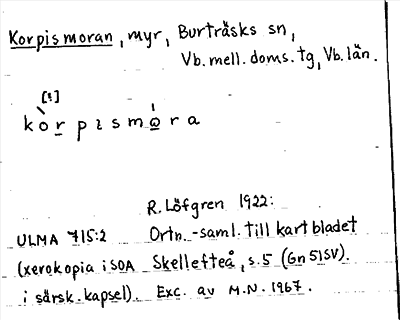 Korpismoran, myr, Burträsks sn,
Vb. mell. doms. tg, Vb. län.
[t]
kòrpɪsmɷ̀ra
R. Löfgren 1922:
ULMA 715:2 Ortn.-saml. till kartbladet
(xerokopia i SOA Skellefteå, s. 5 (Gn 51SV).
i särsk. kapsel). Exc. av M.N. 1967.